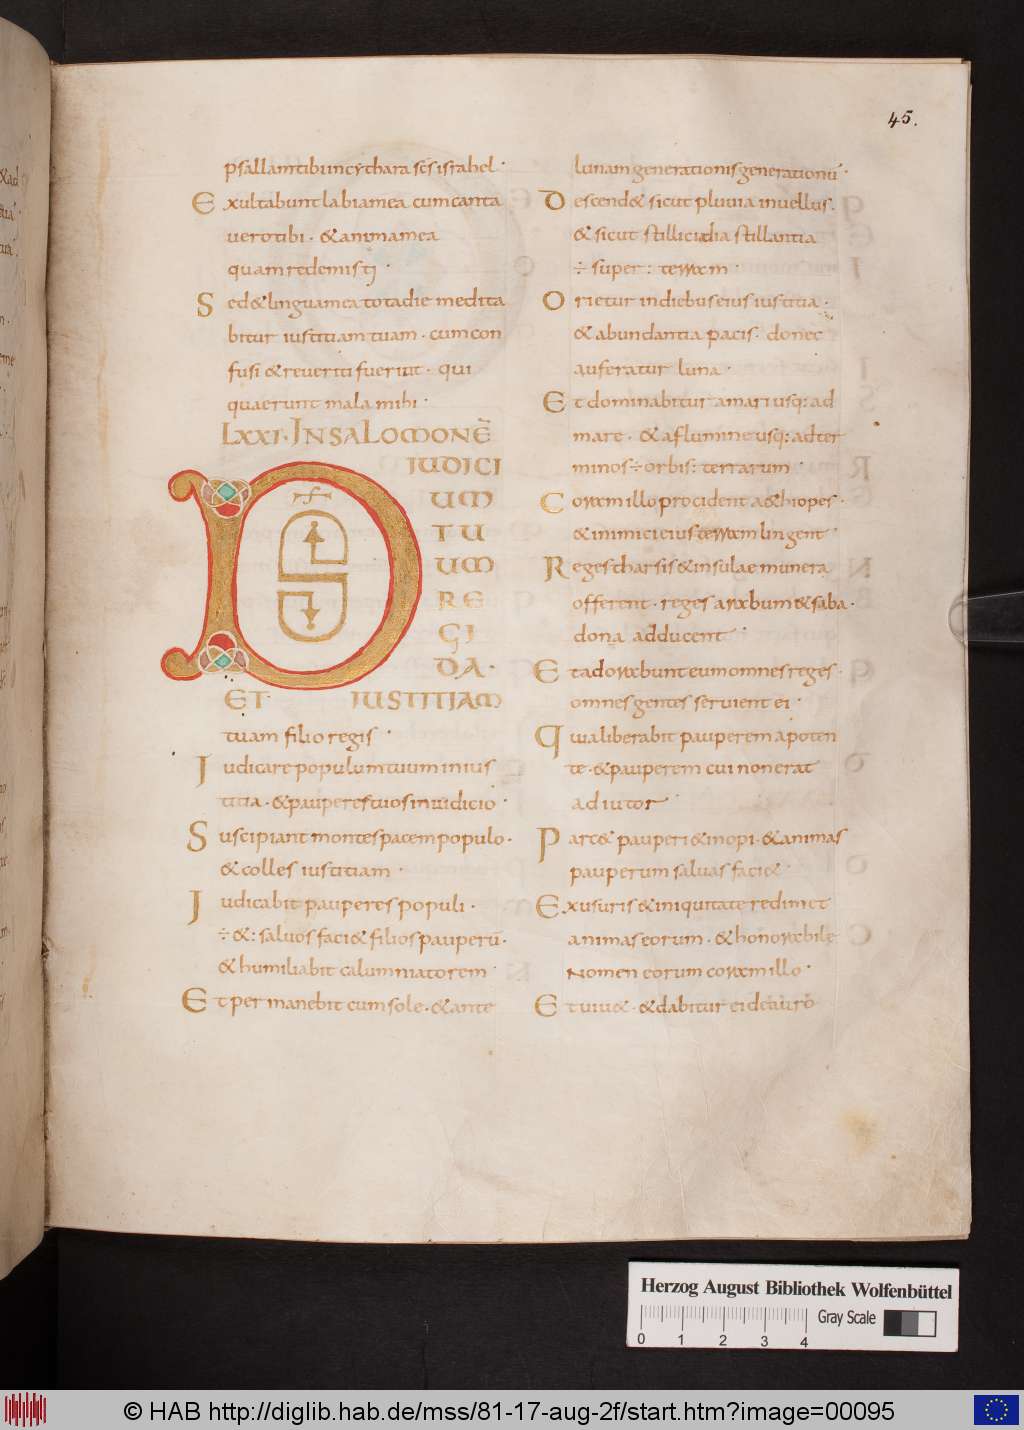 45.
psallam tibi in cythara scs israhel ·
Exultabunt labia mea cum canta
vero tibi · & anima mea
quam redemisti ·
Sed & lingua mea tota die medita
bitur iustitiam tuam · cum con
fusi & reveriti fuerint · qui
quaerunt mala mihi ·
LXXI · IN SALOMONE
D S IUDICI
UM
TU
UM
RE
GI
DA ·
ET IUSTITIAM
tuam filio regis ·
Iudicare populum tuum in ius
titia · & pauperes tuos in iudicio ·
Suscipiant montes pacem populo ·
& colles iustitiam ·
Iudicabit pauperes populi ·
÷ & : salvos faci& filios pauperū ·
& humiliabit calumniatorem ·
Et permanebit cum sole · & ante
lunam generationis generationū ·
Descend& sicut pluvia in vellus ·
& sicut stillicidia stillantia
÷ super : terram ·
Orietur in diebus eius iustitia ·
& abundantia pacis · donec
auferatur luna ·
Et dominabitur a mari usq: ad
mare · & a flumine usq: ad ter
minos ÷ orbis : terrarum ·
Coram illo procident a&hiopes ·
& inimici eius terram lingent ·
Reges tharsis & insulae munera
offerent · reges arabum & saba ·
dona adducent ·
Et adorabunt eum omnes reges ·
omnes gentes servient ei ·
Quia liberabit pauperem a poten
te · & pauperem cui non erat
adiutor ·
Parc& pauperi & inopi · & animas
pauperum salvas faci& ·
Ex usuris & iniquitate redimet
animas eorum · & honorabile
nomen eorum coram illo ·
Et viv& · & dabitur ei de auro
Herzog August Bibliothek Wolfenbüttel
0 1 2 3 4
Gray Scale
© HAB http://diglib.hab.de/mss/81-17-aug-2f/start.htm?image=00095